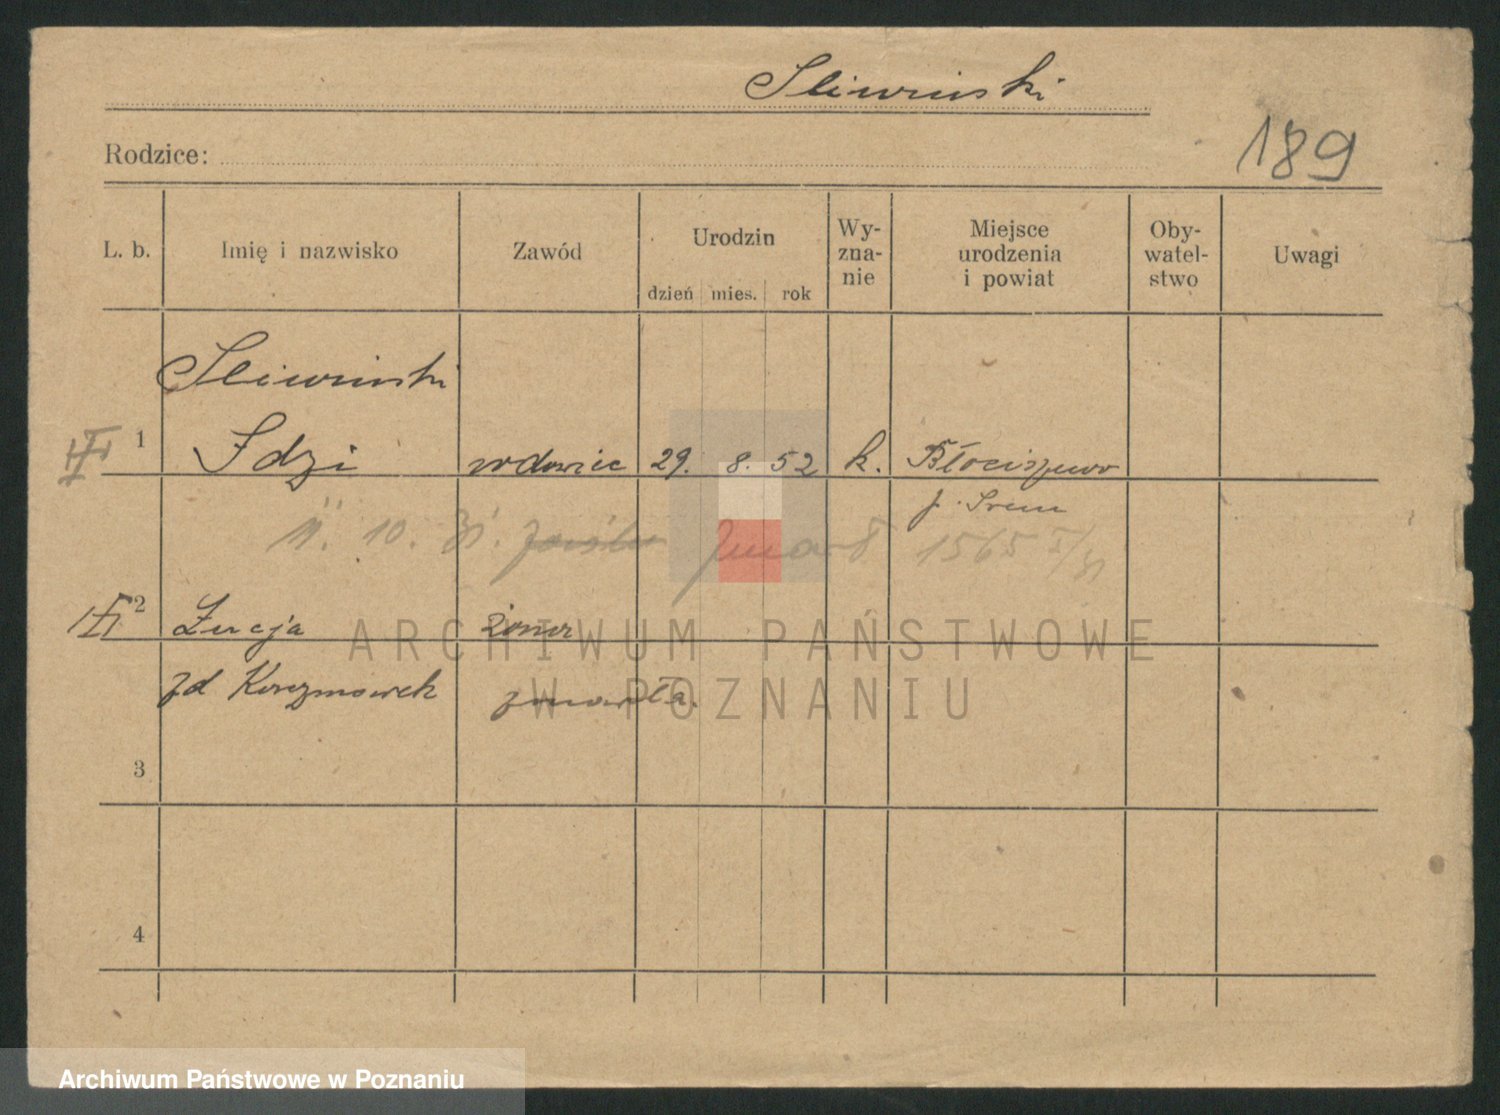 Sliwinski
189
Rodzice:
L. b. Imię i nazwisko Zawód Urodzin dzień mies. rok Wy-zna-nie Miejsce urodzenia i powiat Oby-watel-stwo Uwagi
Sliwinski
1 Idzi wdowiec 29. 8. 52 k. Błociszewo
p. Srem
11. 10. 31. zmarł 1565
2 Łucja żona
zd zmarła.
3
4
ARCHIWUM PAŃSTWOWE
W POZNANIU
Archiwum Państwowe w Poznaniu